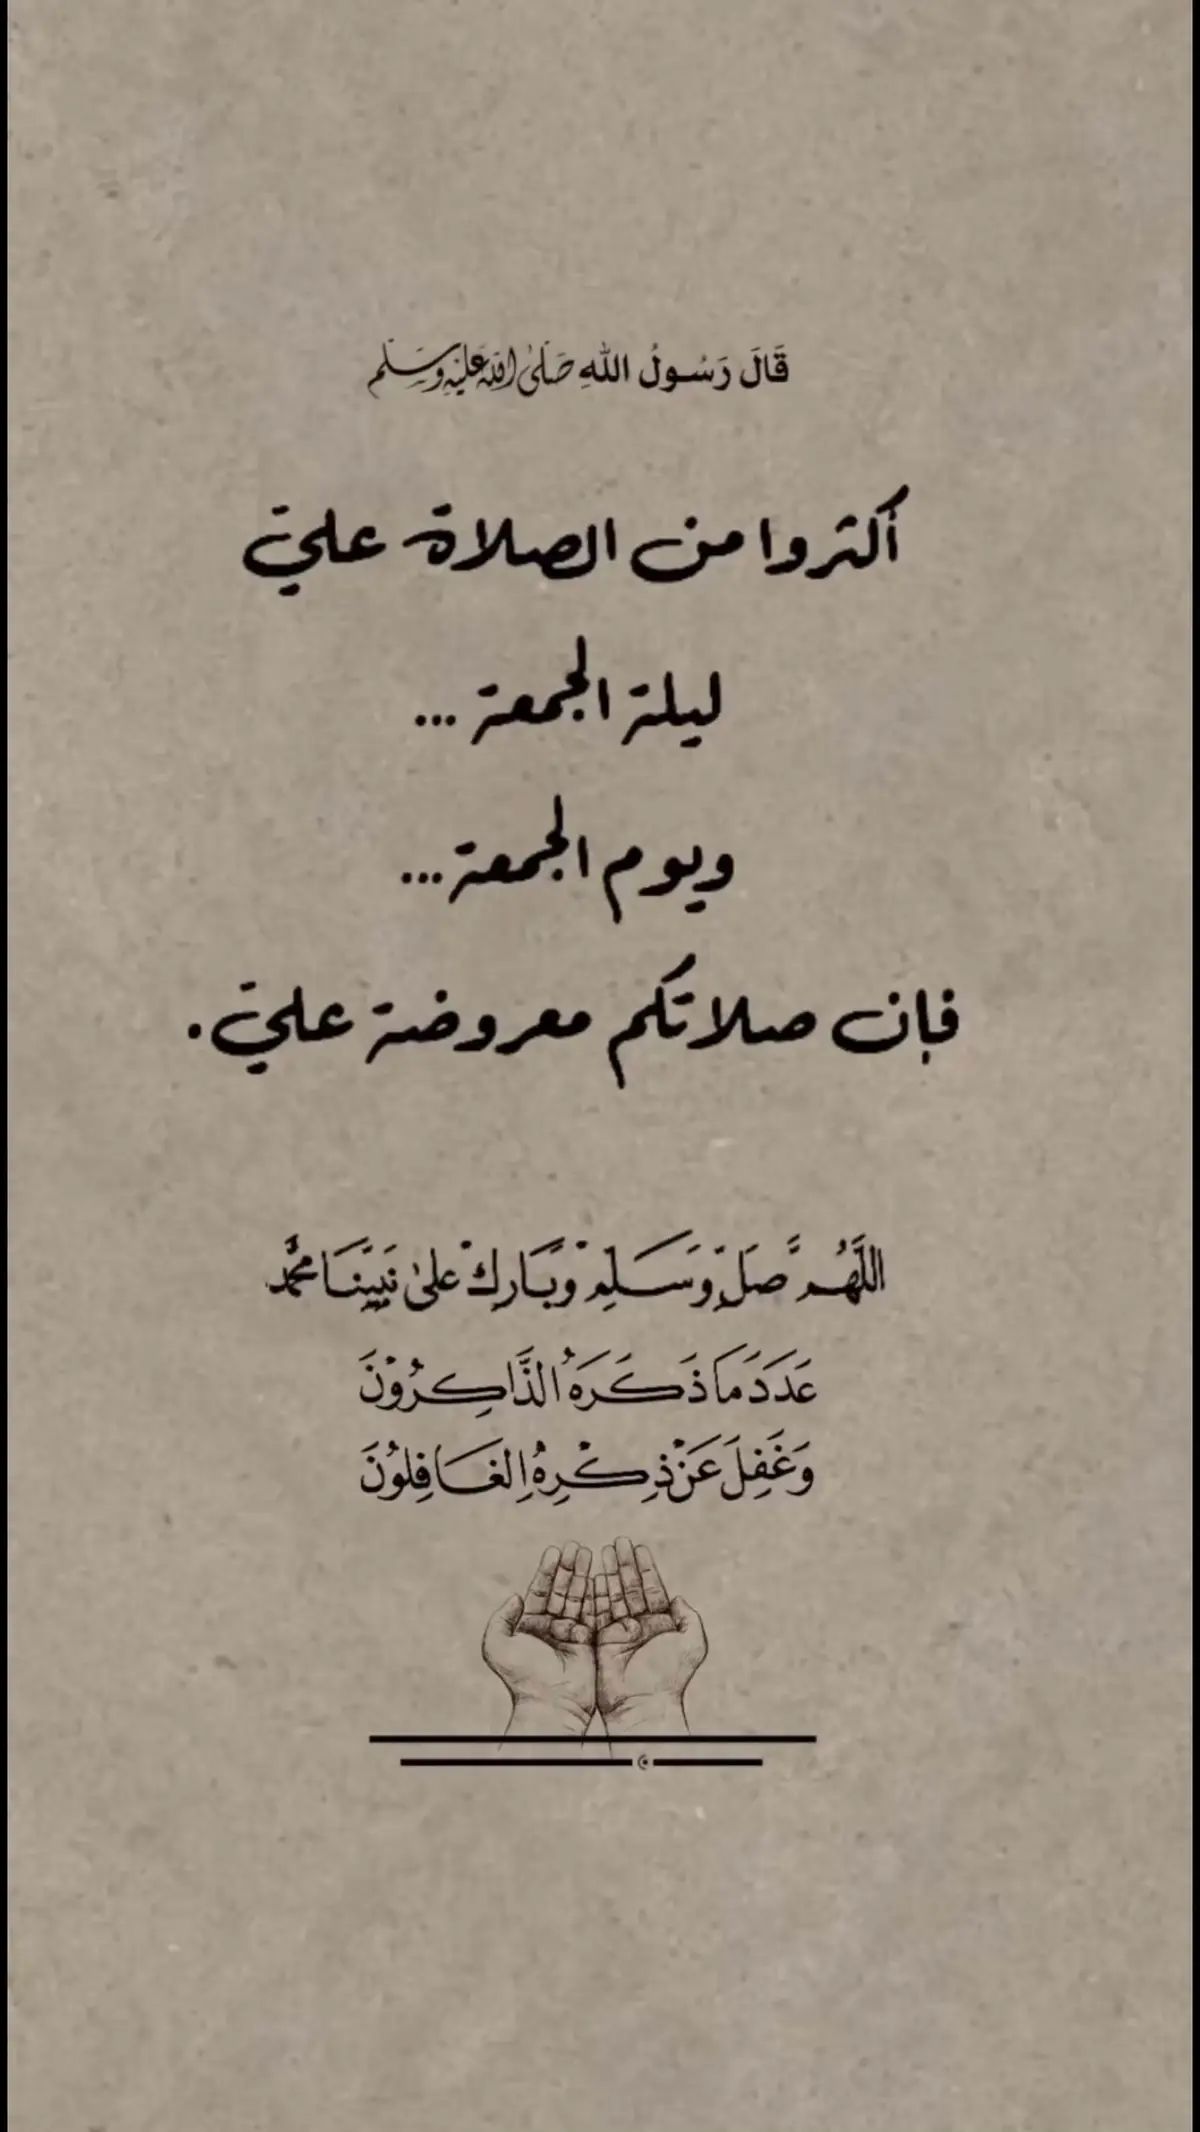 قَالَ رَسُولُ اللهِ صَلَّىٰ اللهُ عَلَيْهِ وَسَلَّم
أكثروا من الصلاة علي
ليلة الجمعة ...
ويوم الجمعة...
فإن صلاتكم معروضة علي.
اللَّهُمَّ صَلِّ وَسَلِّمْ وَبَارِكْ عَلىٰ نَبِيِّنَا مُحَمَّد
عَدَدَ مَا ذَكَرَهُ الذَّاكِرُوْنَ
وَغَفِلَ عَنْ ذِكْرِهِ الغَافِلُوْنَ